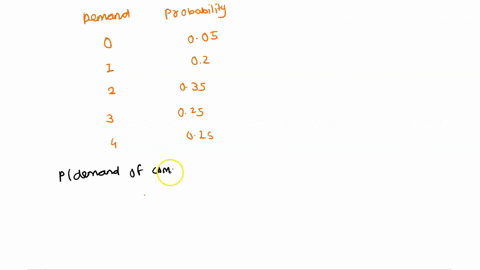 Demand Probability
0 0.05
1 0.2
2 0.35
3 0.25
4 0.25
P(demand of cam